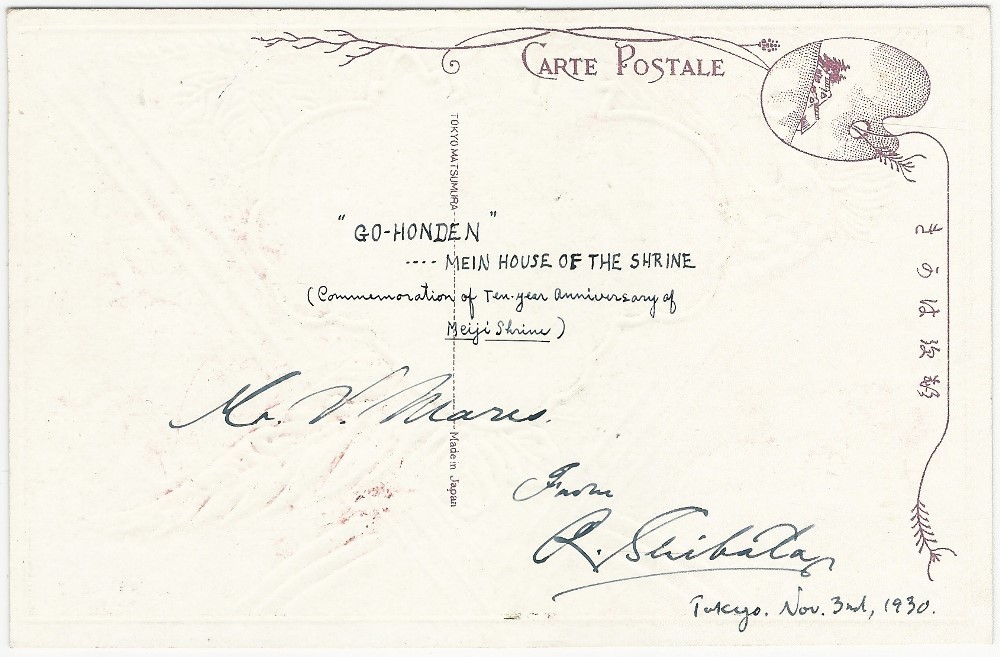 CARTE POSTALE
TOKYO.MATSUMURA
"GO-HONDEN"
---- MEIN HOUSE OF THE SHRINE
(Commemoration of Ten-year Anniversary of
Meiji Shrine)
Mr. V. Mares.
Made in Japan
From
R. Shibata
Tokyo. Nov. 3rd, 1930.
郵便はかき